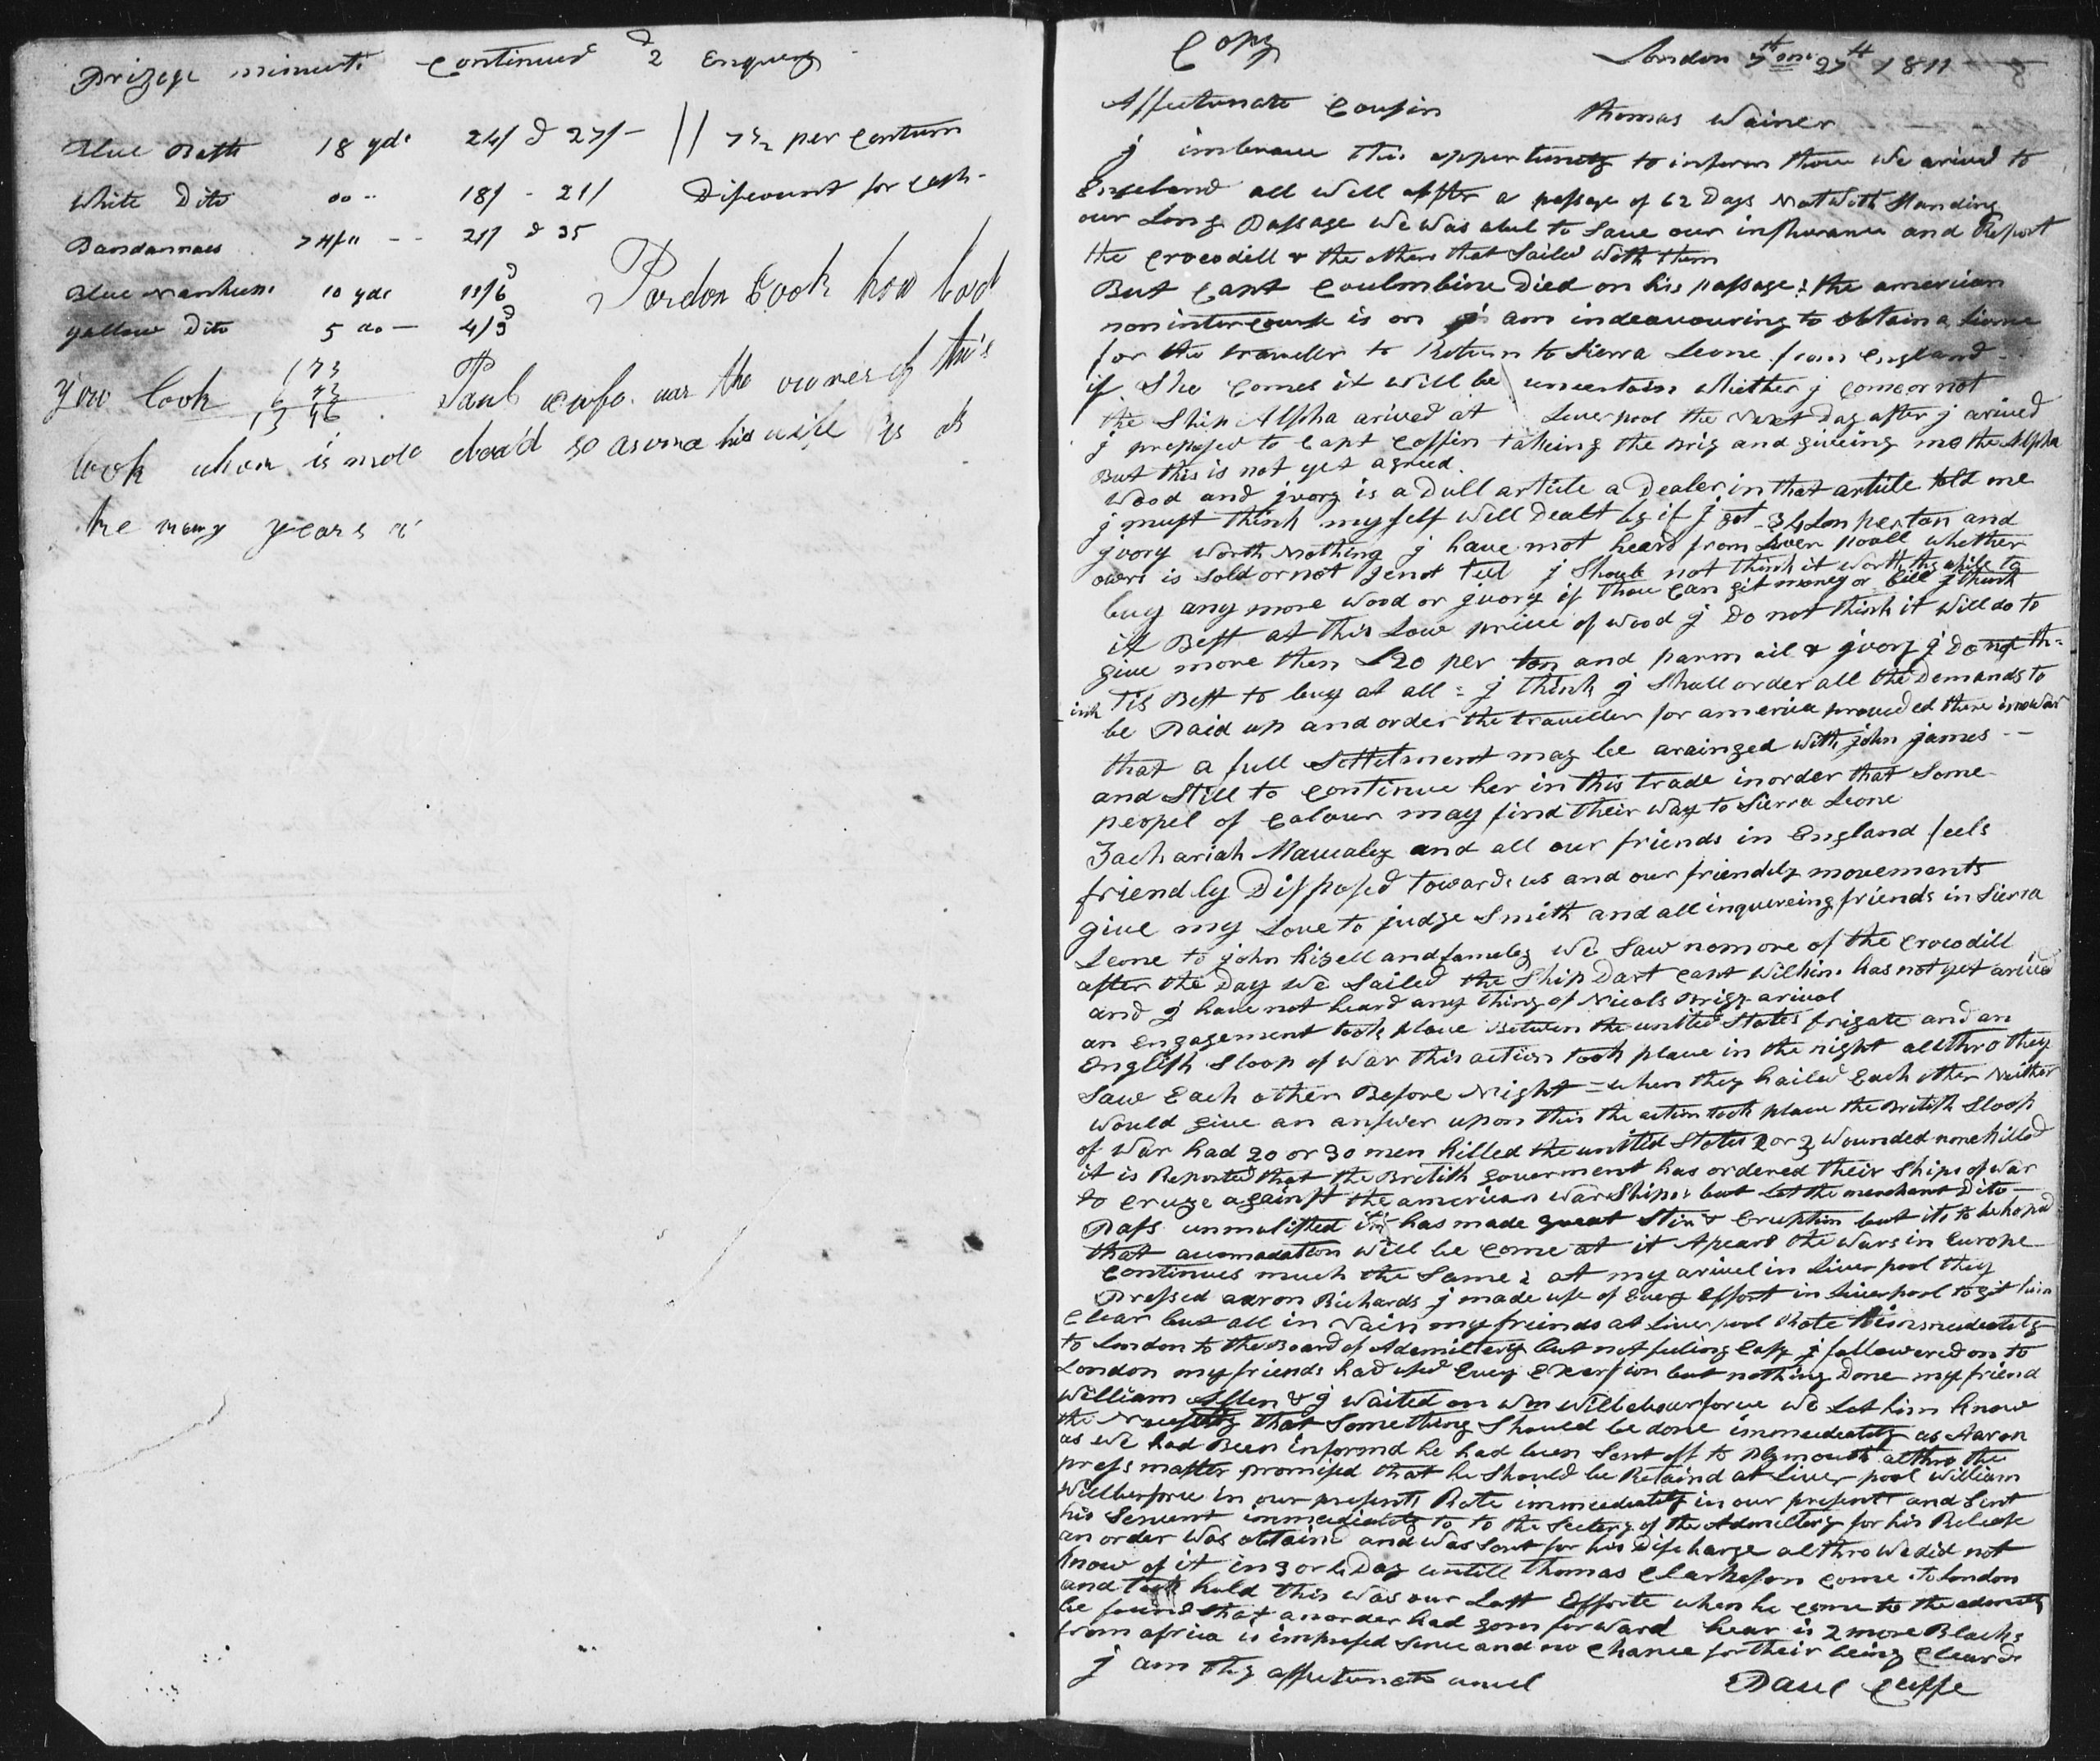 Prizege minuets Continued d 2 Enquery
Blue Bafts 18 yds 24/ d 27/- || 7½ per Centum
White Dito do -- 18/ - 21/ Discount for Cash -
Bandannaes 74/" -- 25/ d 35
Blue Nankens 10 yds 11/6d
yallow Dito 5 do - 4/9d
Pardon Cook how bad
you look
173
6 73
13 46
Paul cufe was the owner of this
look when is mole dead so as wna his wife is ds
he many years a
Copy
London 7th mo 27th 1811
Affectunate Cousin thomas Wainer
j imbrace this oppertunety to inform thee We arived to
England all Well after a passage of 62 Days Not With Standing
our Long Passage We Was abel to Save our inshurance and Report
the Crocodill & the others that Sailed With them
But Capt Coulmbine Died on his passage : the american
nonintercourse is on j am indeavouring to obtain a Lisence
for the traveller to Return to Sierra Leone from England -
if She Comes it Will be uncertain Whither j Come or not
the Ship Alpha arived at Liverpool the Next Day after j arived
j proposed to Capt Coffin taking the Brig and giveing me the Alpha
But this is not yet agreed.
Wood and jvory is a Dull article a Dealer in that article told me
j must think myself Well Dealt by if j got 34 Lon per ton and
jvory Worth Nothing j have not heard from Liver Pooll Whether
ours is Sold or not Send Tell j Should not think it Worth thy While to
buy any more Wood or jvory if thou Can git money or bill j think
it Best at this Low price of Wood j Do not think it Will do to
give more then £20 per ton and parm oil & jvory j Do not th=
ink Tis Best to buy at all = j think j Shall order all the Demands to
be Paid up and order the traveller for america provided there is no War
that a full Settelment may be arainged With john james --
and Still to Continue her in this trade inorder that Some
peopel of Colour may find their Way to Sierra Leone
Zachariah Macualey and all our friends in England feels
friendly Disposed towards us and our friendly movements
give my Love to judge Smith and all inquereing friends in Sierra
Leone to john Kizell and fameley We Saw nomore of the Crocodill
after the Day We Sailed the Ship Dart Capt Wilkins has not yet arived
and j have not heard any thing of Nicols Brigs arival
an Engagement took place Between the united States frigate and an
English Sloop of War this action took place in the night allthro they
Saw Each other Before Night = When they hailed Each other Neither
Would give an answer upon this the action took place the British Sloop
of War had 20 or 30 men killed the united States 2 or 3 Wounded none killed
it is Reported that the British Goverment has ordered their Ships of War
to Cruze against the american War Ships but Let the merchant Dito -
Pass unmolisted this has made great Stir & Eruption but its to be hoped
that accomadation Will be Come at it Apears the Wars in Europe
Continues much the Same : at my arivel in Liver pool they
Pressed aaron Richards j made use of Every Effort in Liverpool to git him
Clear but all in Vain my friends at Liverpool Rote immedeately
to London to the Board of Ademiltery but not feeling Easy j followered on to
London my friends had used Every Exersion but nothing Done my friend
William Allen & j Waited on Wm Willebourforce We Let him know
the Necessity that Something Should be done immedeately as Aaron
as We had Been informd he had been Sent off to Plymouth althro the
press master promised that he Should be Retaind at Liver pool William
Willberforce in our presents Rote immedeately in our presents and Sent
his Servent immedeately to to the Sectery of the Admeltery for his Release
an order Was obtaind and Was Sent for his Discharge althro We did not
know of it in 3 or 4 Day untill thomas Clarkeson Come to London
and took hold this Was our Last Efforte when he come to the
he found that an order had gorn forWard hear is 2 more Blacks
from africa is impresed Sence and no Chance for their being Cleard
j am thy affectunate uncel Paul Cuffe